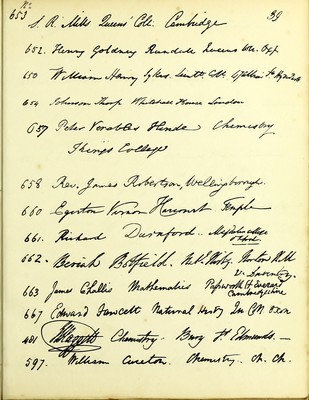 No
653 S. R. Mills Queens' Coll. Cambridge 39
652. Henry Goldney Randall Queens Coll. Oxf
650 William Henry Sykes.
654 Johnson Thorp Whitehall House London
657 Peter Venables Hinde Chemistry
Kings College
658 Rev. James Robertson, Wellingborough.
660 Egerton Vernon Harcourt Temple
661. Richard Durnford. Middleton
662. Beriah Botfield. Nat. Histy. Norton Hall
Daventry.
663 James Challis Mathematics Papworth St Everard
Cambridgeshire
667 Edward Fawcett Natural Histy Qu Coll Oxon
481 Chemistry. Bury St Edmunds. —
597. William Cureton. Chemistry. Ch. Ch.